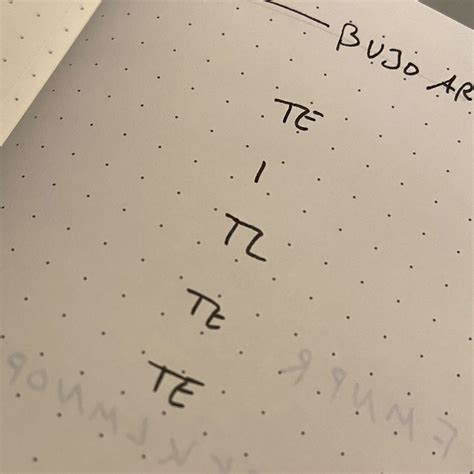 BUJO AR
TE
I
TL
TE
TE